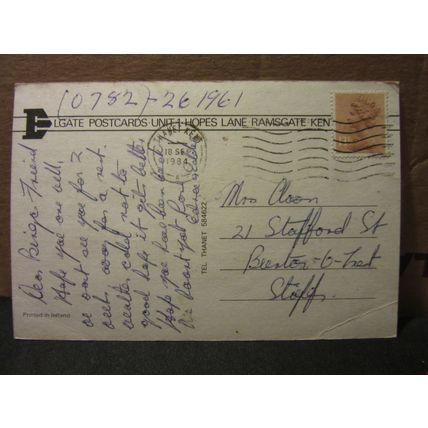 (0782)-261961
ELGATE POSTCARDS·UNIT 1·HOPES LANE·RAMSGATE KENT
THANET KENT
18 SE
1984
Dear Bingo Friend
Hope you are well,
we wont see you for 2
weeks away for a rest.
weather cold not to
good hope it gets better
Hope you have been
TEL THANET 584622
Printed in Ireland
Mrs
21 Stafford St
Staffs.